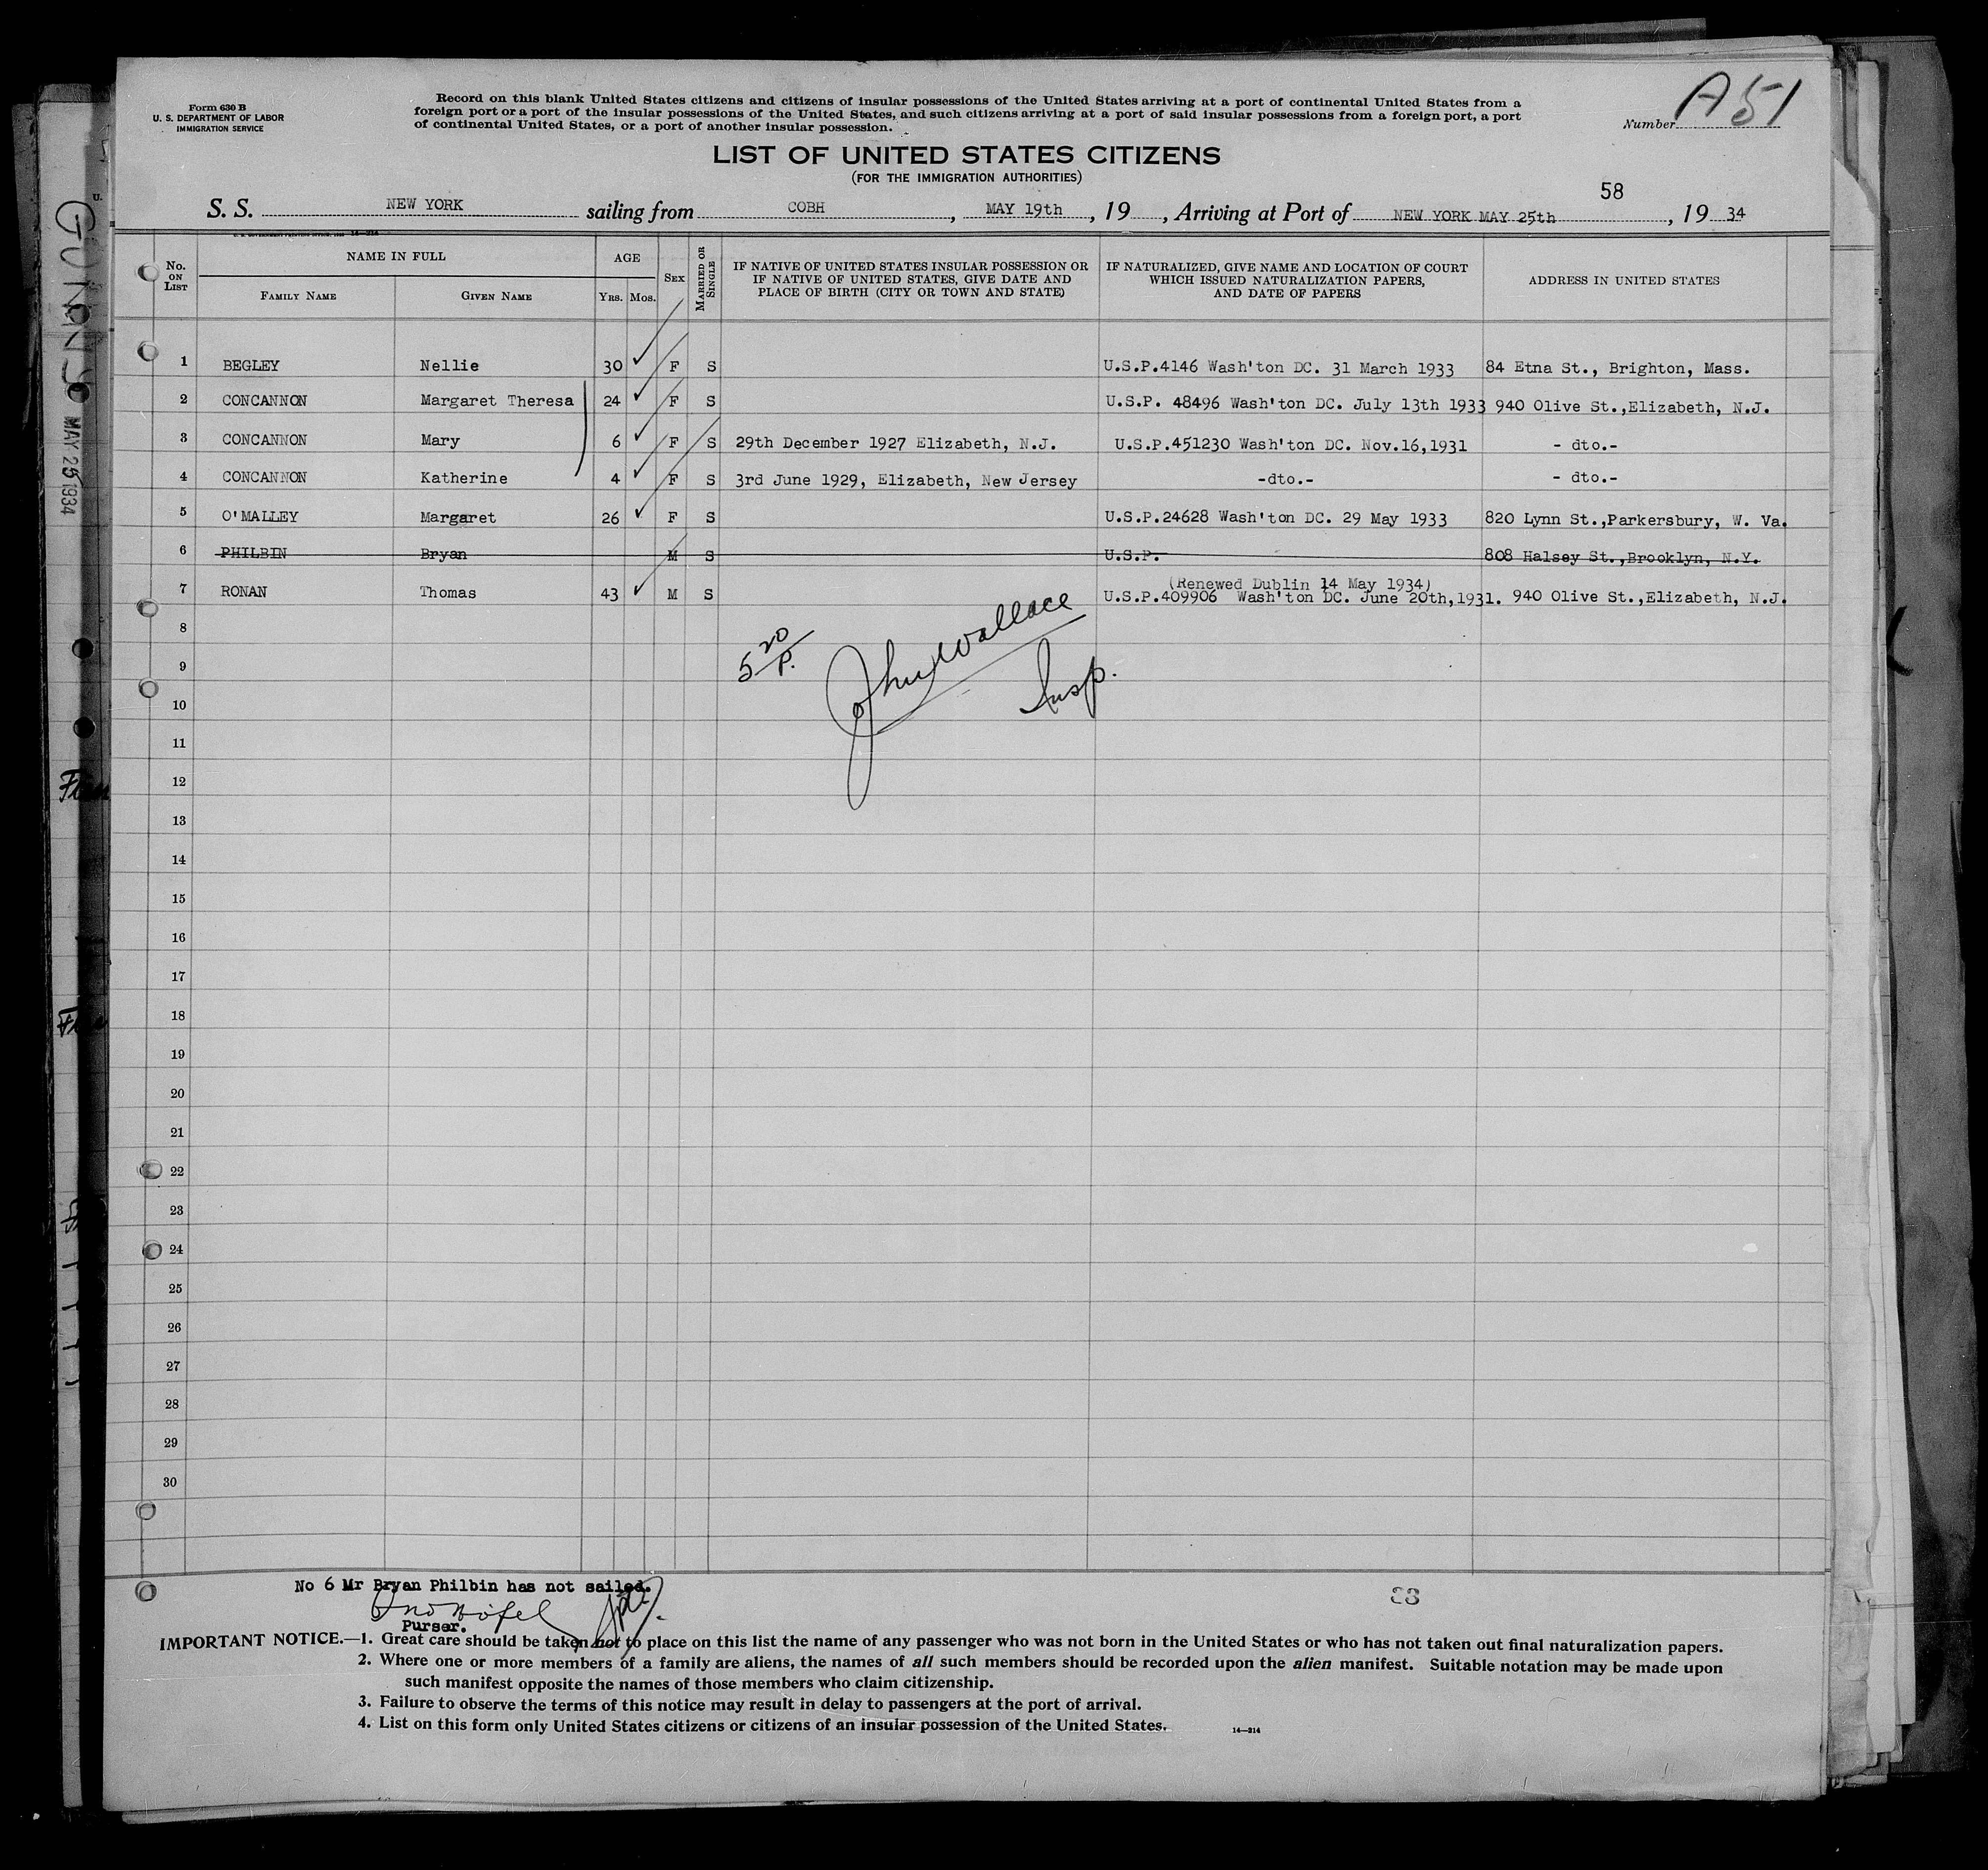 Form 630 B
U. S. DEPARTMENT OF LABOR
IMMIGRATION SERVICE
Record on this blank United States citizens and citizens of insular possessions of the United States arriving at a port of continental United States from a
foreign port or a port of the insular possessions of the United States, and such citizens arriving at a port of said insular possessions from a foreign port, a port
of continental United States, or a port of another insular possession.
Number A51
LIST OF UNITED STATES CITIZENS
(FOR THE IMMIGRATION AUTHORITIES)
58
S. S. NEW YORK sailing from COBH, MAY 19th, 19, Arriving at Port of NEW YORK MAY 25th, 19 34
No. ON LIST NAME IN FULL FAMILY NAME GIVEN NAME AGE YRS. MOS. SEX MARRIED OR SINGLE IF NATIVE OF UNITED STATES INSULAR POSSESSION OR IF NATIVE OF UNITED STATES, GIVE DATE AND PLACE OF BIRTH (CITY OR TOWN AND STATE) IF NATURALIZED, GIVE NAME AND LOCATION OF COURT WHICH ISSUED NATURALIZATION PAPERS, AND DATE OF PAPERS ADDRESS IN UNITED STATES
1 BEGLEY Nellie 30 F S U.S.P.4146 Wash'ton DC. 31 March 1933 84 Etna St., Brighton, Mass.
2 CONCANNON Margaret Theresa 24 F S U.S.P. 48496 Wash'ton DC. July 13th 1933 940 Olive St.,Elizabeth, N.J.
3 CONCANNON Mary 6 F S 29th December 1927 Elizabeth, N.J. U.S.P.451230 Wash'ton DC. Nov.16,1931 - dto.-
4 CONCANNON Katherine 4 F S 3rd June 1929, Elizabeth, New Jersey -dto.- - dto.-
5 O'MALLEY Margaret 26 F S U.S.P.24628 Wash'ton DC. 29 May 1933 820 Lynn St.,Parkersbury, W. Va.
6 PHILBIN Bryan M S U.S.P. 808 Halsey St.,Brooklyn, N.Y.
(Renewed Dublin 14 May 1934)
7 RONAN Thomas 43 M S U.S.P.409906 Wash'ton DC. June 20th,1931. 940 Olive St.,Elizabeth, N.J.
8
5 20 P. John Wallace
9
Insp.
10
11
12
13
14
15
16
17
18
19
20
21
22
23
24
25
26
27
28
29
30
No 6 Mr Bryan Philbin has not sailed.
Purser.
IMPORTANT NOTICE.—1. Great care should be taken not to place on this list the name of any passenger who was not born in the United States or who has not taken out final naturalization papers.
2. Where one or more members of a family are aliens, the names of all such members should be recorded upon the alien manifest. Suitable notation may be made upon
such manifest opposite the names of those members who claim citizenship.
3. Failure to observe the terms of this notice may result in delay to passengers at the port of arrival.
4. List on this form only United States citizens or citizens of an insular possession of the United States.
14—214
MAY 25 1934